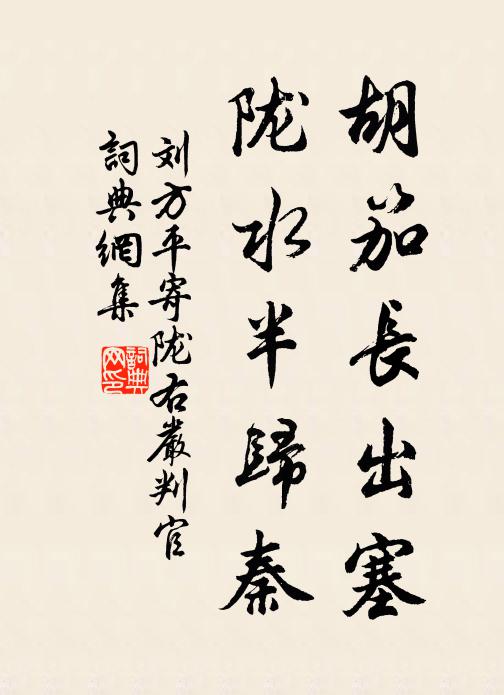 胡笳長出塞
陇水半歸秦
刘方平寄陇右嚴判官
詞典網集
詞典网印